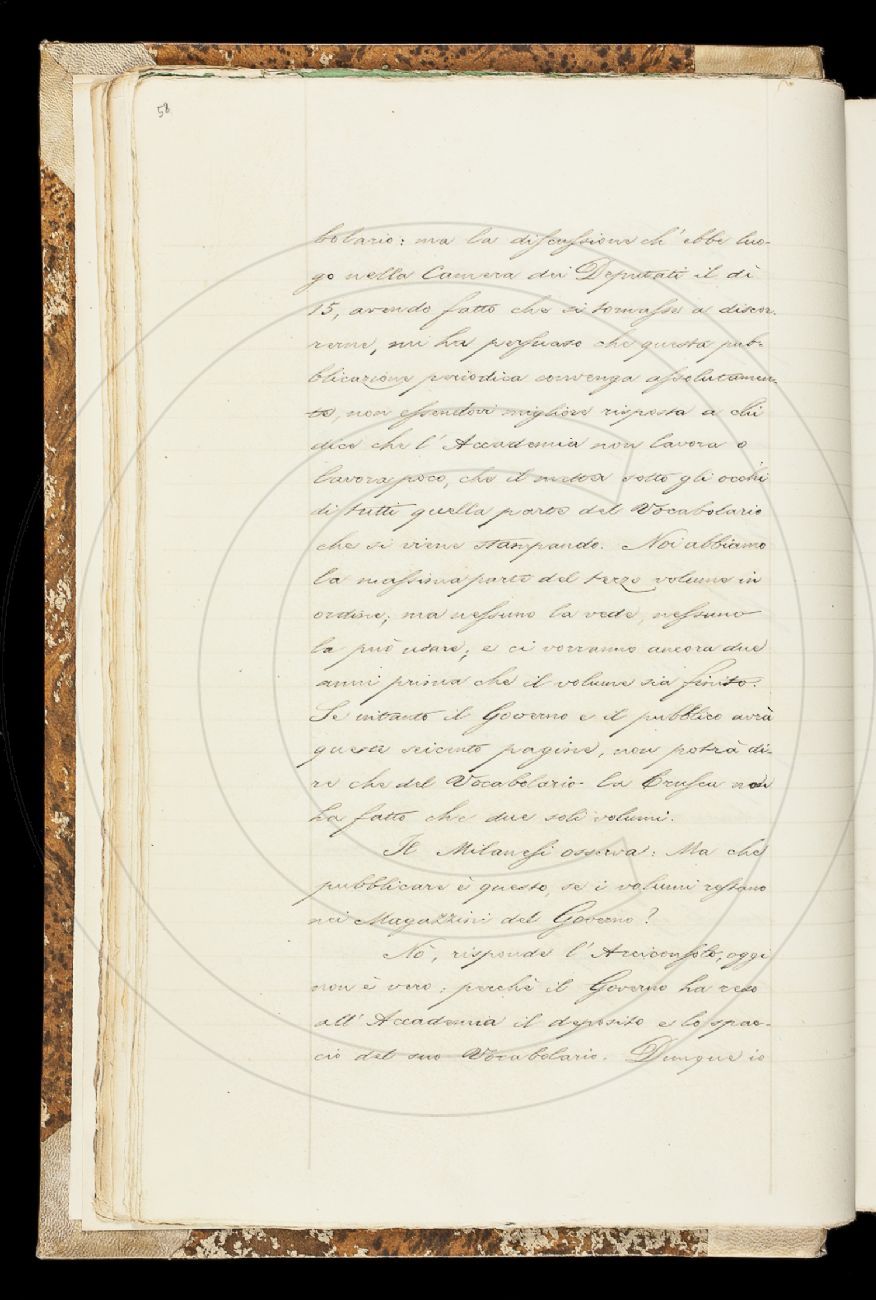 58
bolario: ma la discussione ch' ebbe luo-
go nella Camera dei Deputati il dì
15, avendo fatto che si tornasse a discor-
rerne, mi ha persuaso che questa pub-
blicazione periodica convenga assolutamen-
te, non essendovi migliore risposta a chi
dice che l' Accademia non lavora o
lavora poco, che il metter sotto gli occhi
di tutti quella parte del Vocabolario
che si viene stampando. Noi abbiamo
la massima parte del terzo volume in
ordine; ma nessuno la vede, nessuno
la può usare; e ci vorranno ancora due
anni prima che il volume sia finito.
Se intanto il Governo e il pubblico avrà
queste seicento pagine, non potrà di-
re che del Vocabolario la Crusca non
ha fatto che due soli volumi.
Il Milanesi osserva: Ma che
pubblicare è questo, se i volumi restano
nei Magazzini del Governo?
No, risponde l' Arciconsolo, oggi
non è vero; perchè il Governo ha reso
all' Accademia il deposito e lo spac-
cio del suo Vocabolario. Dunque io